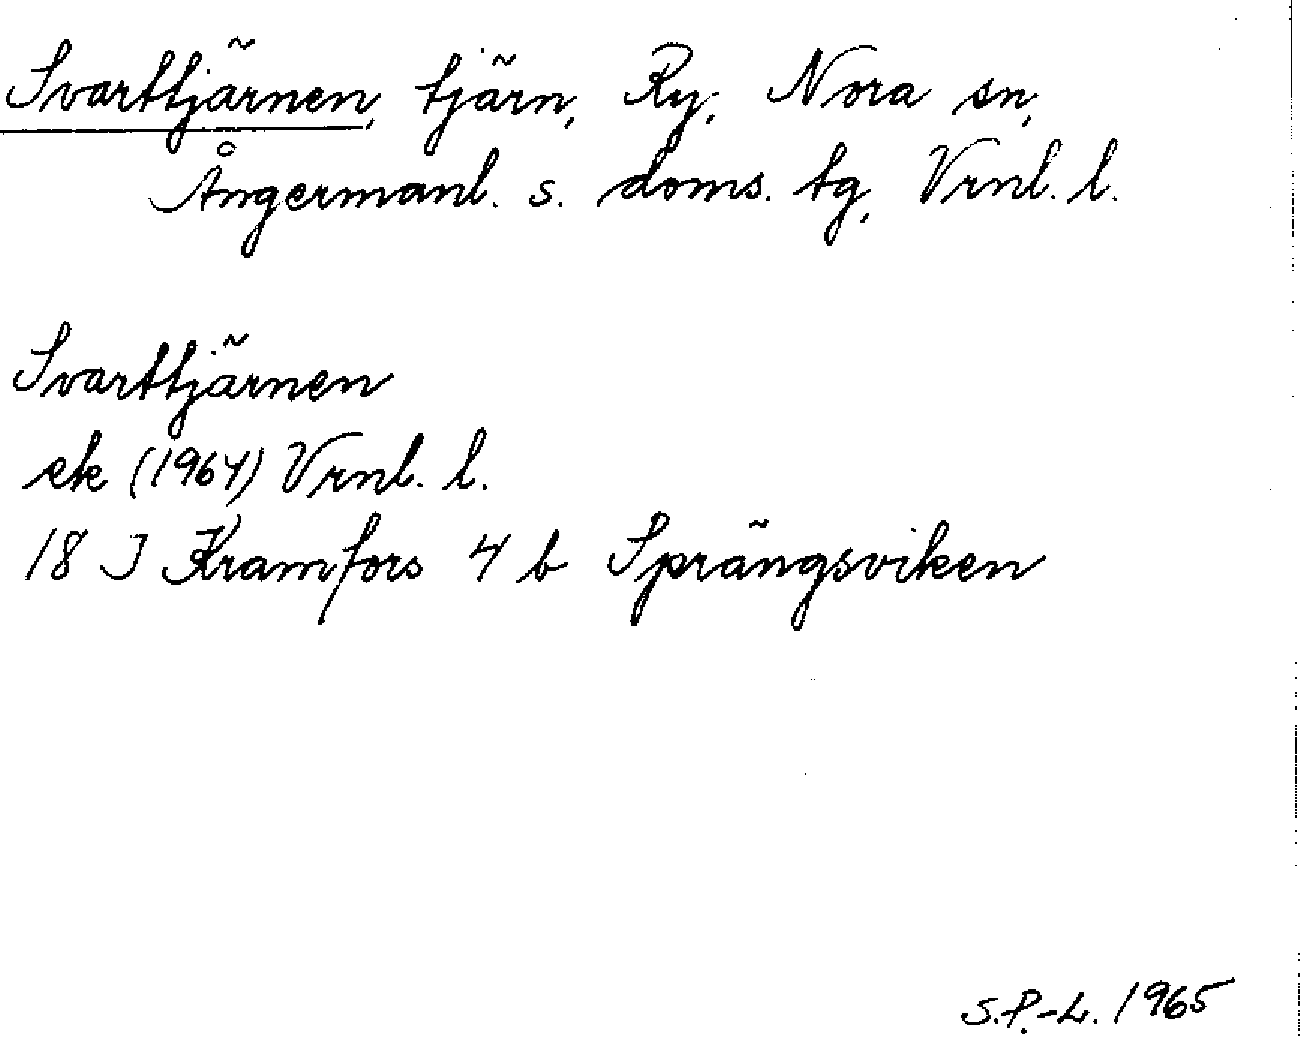 Svarttjärnen, tjärn, Ry, Nora sn,
Ångermanl. s. doms. tg, Vrnl. l.
Svarttjärnen
ek (1964) Vrnl. l.
18 J Kramfors 4 b Sprängsviken
S.P.-L. 1965